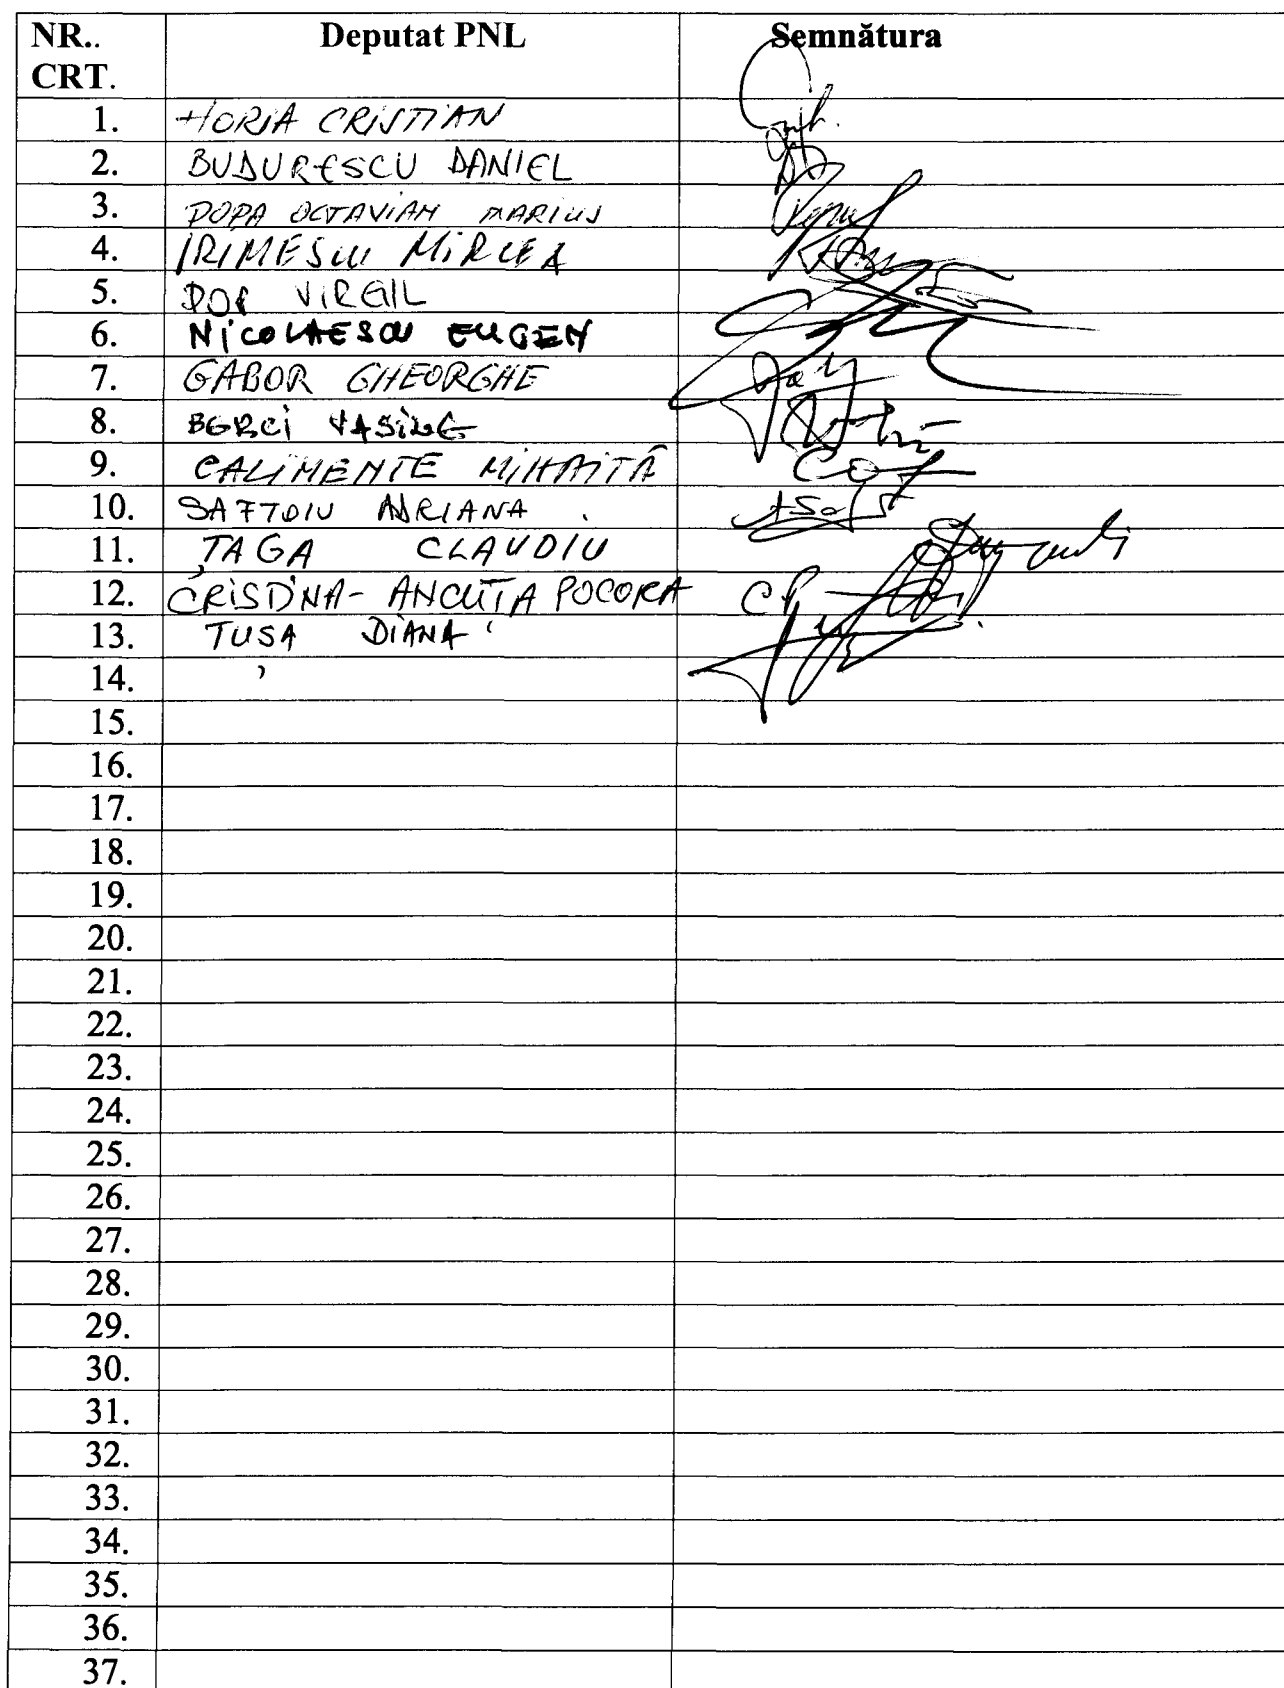 NR.. Deputat PNL Semnătura
CRT.
1. HORIA CRISTIAN
2. BUDURESCU DANIEL
3. POPA OCTAVIAN MARIUS
4. IRIMESCU MIRCEA
5. POP VIRGIL
6. NICOLAESCU EUGEN
7. GABOR GHEORGHE
8. BERCI VASILE
9. CALIMENTE MIHĂIȚĂ
10. SAFTOIU ADRIANA
11. ȚAGA CLAUDIU
12. CRISTINA-ANCUȚA POCORA
13. TUȘA DIANA
14.
15.
16.
17.
18.
19.
20.
21.
22.
23.
24.
25.
26.
27.
28.
29.
30.
31.
32.
33.
34.
35.
36.
37.